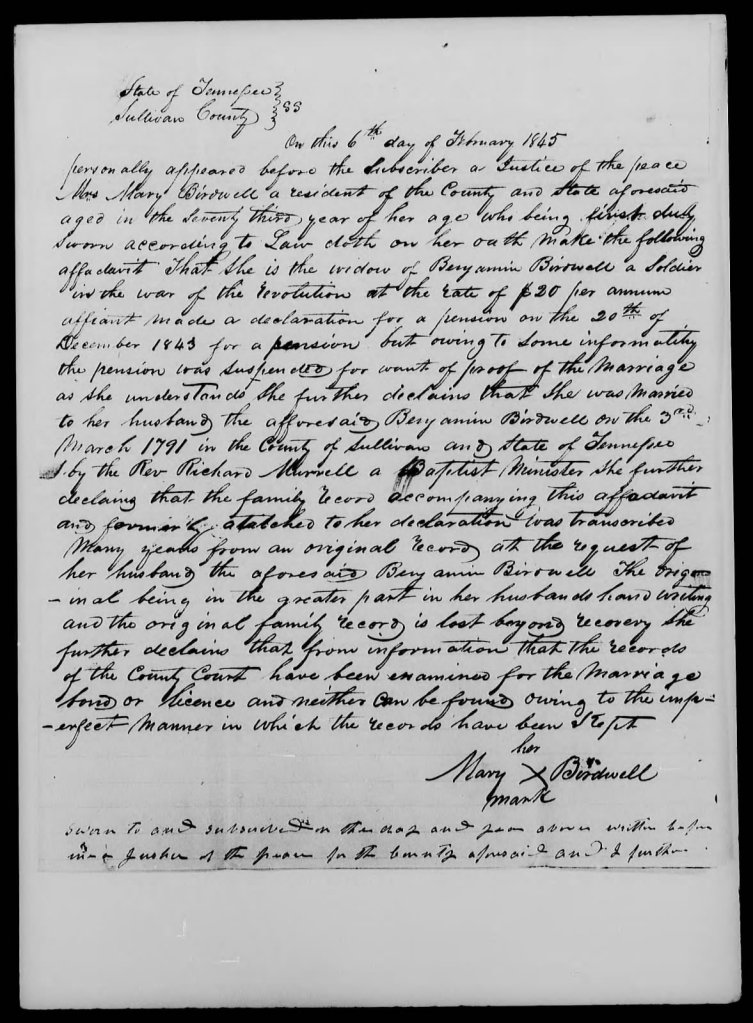 State of Tennessee }
Sullivan County } SS
On this 6th day of February 1845
personally appeared before the Subscriber a Justice of the peace
Mrs Mary Birdwell a resident of the County and State aforesaid
aged in the Seventy third year of her age who being first duly
Sworn according to Law doth on her oath make the following
affadavit That She is the widow of Benjamin Birdwell a Soldier
in the war of the revolution at the rate of $20 per annum
affiant made a declaration for a pension on the 20th of
December 1843 for a pension but owing to some informality
the pension was suspended for want of proof of the Marriage
as she understands She further declains that She was Married
to her husband the afforesaid Benjamin Birdwell on the 3rd
March 1791 in the County of Sullivan and State of Tennessee
by the Rev Richard Murrell a Baptist Minister She further
declaing that the family record accompanying this affadavit
and formerly atatched to her declaration was transcribed
Many years from an original record at the request of
her husband the aforesaid Benjamin Birdwell The orige
-inal being in the greater part in her husbands hand writing
and the original family record is lost beyond recovery She
further declains that from information that the records
of the County Court have been examined for the Marriage
bond or licence and neither can be found owing to the imp-
-erfect Manner in which the records have been Kept
her
Mary X Birdwell
mark
Sworn to and subscribed on the day and year above written before
me a Justice of the peace for the County aforesaid and I further